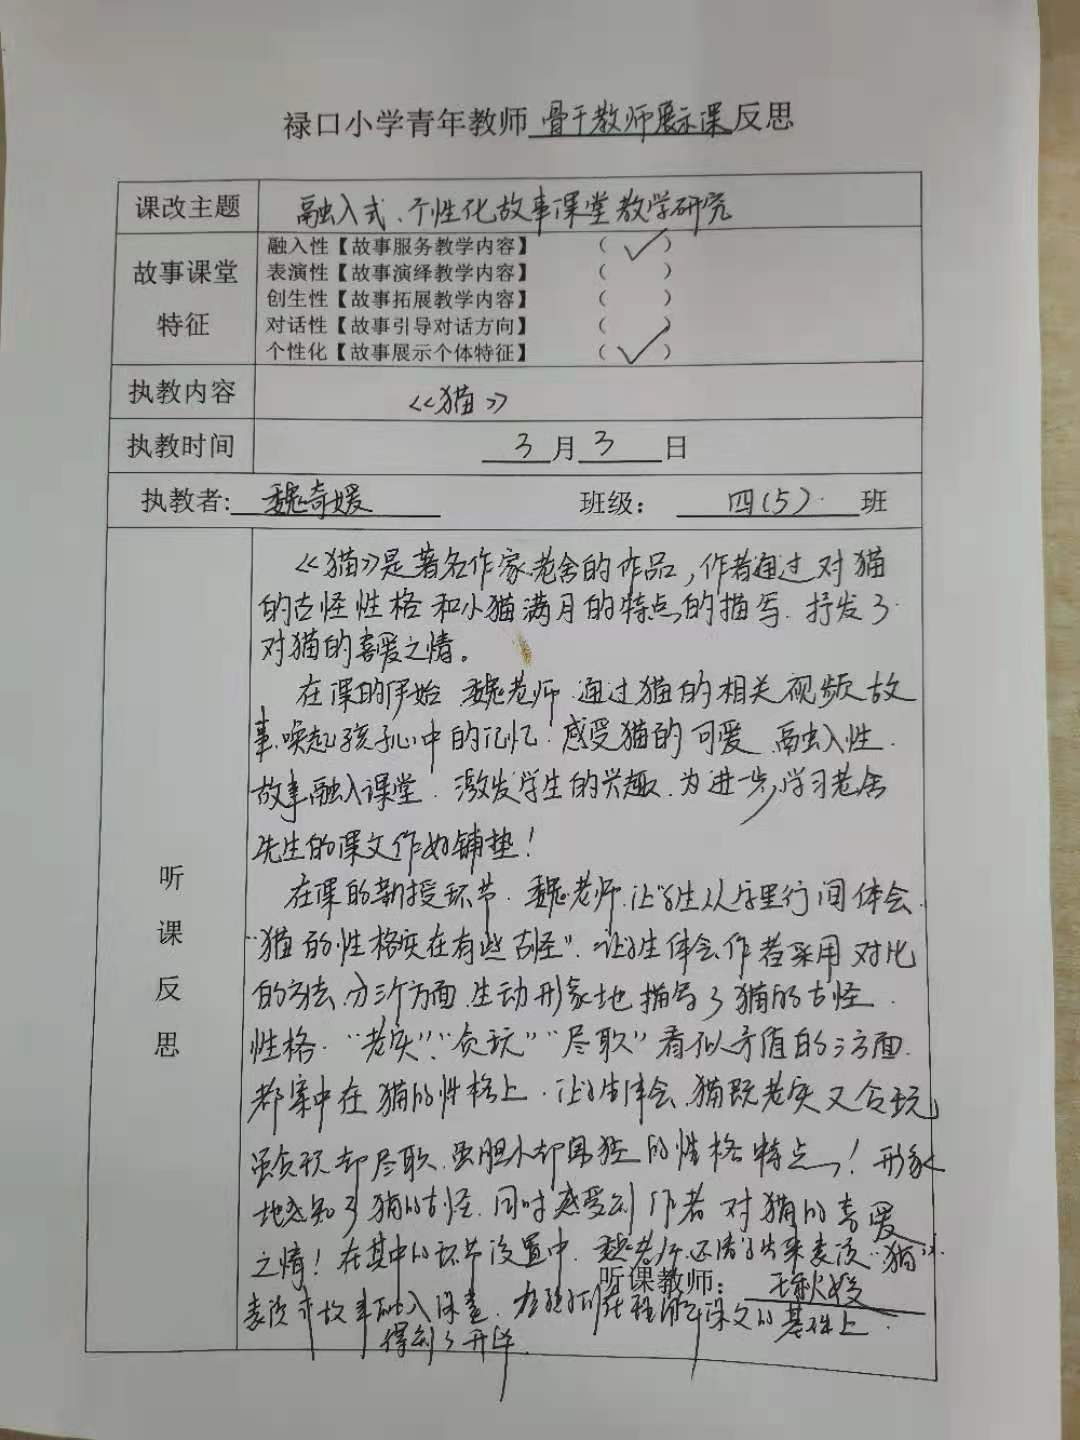 禄口小学青年教师 骨干教师展示课 反思
课改主题 融入式、个性化故事课堂教学研究
故事课堂特征
融入性【故事服务教学内容】 （ ✓ ）
表演性【故事演绎教学内容】 （ ）
创生性【故事拓展教学内容】 （ ）
对话性【故事引导对话方向】 （ ）
个性化【故事展示个体特征】 （ ✓ ）
执教内容 《猫》
执教时间 3 月 3 日
执教者: 魏奇媛 班级： 四(5) 班
听课反思
《猫》是著名作家老舍的作品，作者通过对猫
的古怪性格和小猫满月的特点的描写．抒发了
对猫的喜爱之情。
在课的伊始 魏老师 通过猫的相关视频故
事、唤起孩子心中的记忆．感受猫的可爱 融入性．
故事融入课堂．激发学生的兴趣．为进一步学习老舍
先生的课文作好铺垫！
在课的新授环节．魏老师 让学生从字里行间体会
“猫的性格实在有些古怪”．让学生体会作者采用对比
的方法、分三个方面 生动形象地描写了猫的古怪
性格．“老实”、“贪玩”“尽职”看似矛盾的三方面．
都集中在猫的性格上．让学生体会 猫既老实又贪玩
虽贪玩却尽职、虽胆小却勇猛的性格特点！形象
地感知了猫的古怪．同时感受到作者对猫的喜爱
之情！在其中的环节设置中．魏老师还请学生来表演“猫”．
听课教师：
表演 故事融入课堂． 在理解课文的基础上．
得到了升华．